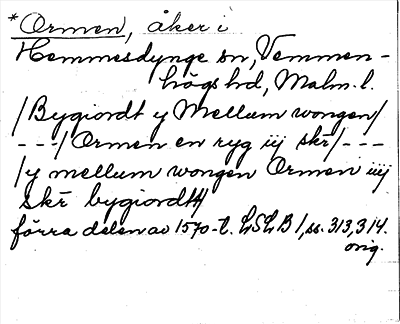 *Ormen, åker i
Hemmesdynge sn, Vemmen-
högs hd, Malm. l.
/Bygiordt y Mellum wongen/
---/Ormen en ryg iij skr/---
/y mellum wongen Ormen iiij
skr bygiordt/
förra delen av 1570-t. LSLB 1, ss. 313, 314.
orig.